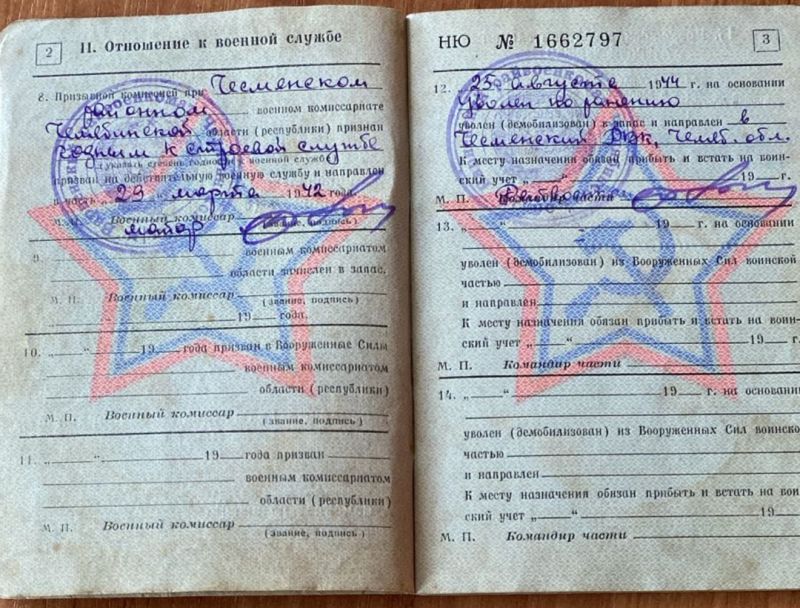 2
II. Отношение к военной службе
8. Призывной комиссией при Чесменском
районном военном комиссариате
Челябинской области (республики) признан
годным к строевой службе
(указать степень годности к военной службе)
призван на действительную военную службу и направлен
в часть „29" марта 1942 года.
М. П. Военный комиссар
майор (звание, подпись)
9. военным комиссариатом
области зачислен в запас.
М. П. Военный комиссар
(звание, подпись)
„ " 19 года.
10. „ " 19 года призван в Вооруженные Силы
военным комиссариатом
области (республики)
М. П. Военный комиссар
(звание, подпись)
11. „ " 19 года призван
военным комиссариатом
области (республики)
М. П. Военный комиссар
(звание, подпись)
НЮ № 1662797
3
12. „25" августа 1944 г. на основании
уволен по ранению
уволен (демобилизован) в запас и направлен в
Чесменский РВК, Челяб. обл.
К месту назначения обязан прибыть и встать на воин-
ский учет „ " 19 г.
М. П. Командир части
13. „ " 19 г. на основании
уволен (демобилизован) из Вооруженных Сил воинской
частью
и направлен
К месту назначения обязан прибыть и встать на воин-
ский учет „ " 19 г.
М. П. Командир части
14. „ " 19 г. на основании
уволен (демобилизован) из Вооруженных Сил воинско
частью
и направлен
К месту назначения обязан прибыть и встать на вои
ский учет „ " 19
М. П. Командир части